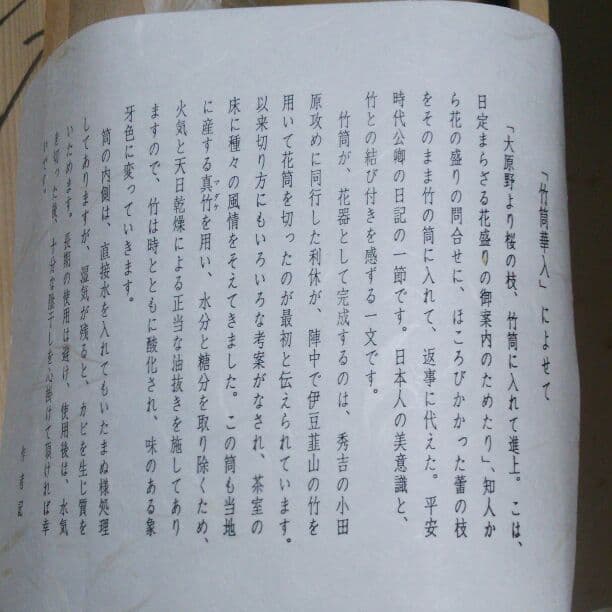 「竹筒華入」によせて
「大原野より桜の枝、竹筒に入れて進上。こは、
日定まらざる花盛りの御案内のためたり」、知人か
ら花の盛りの問合せに、ほころびかかった蕾の枝
をそのまま竹の筒に入れて、返事に代えた。平安
時代公卿の日記の一節です。日本人の美意識と、
竹との結び付きを感ずる一文です。
竹筒が、花器として完成するのは、秀吉の小田
原攻めに同行した利休が、陣中で伊豆韮山の竹を
用いて花筒を切ったのが最初と伝えられています。
以来切り方にもいろいろな考案がなされ、茶室の
床に種々の風情をそえてきました。この筒も当地
に産する真竹を用い、水分と糖分を取り除くため、
マダケ
火気と天日乾燥による正当な油抜きを施してあり
ますので、竹は時とともに酸化され、味のある象
牙色に変っていきます。
筒の内側は、直接水を入れてもいたまぬ様処理
してありますが、湿気が残ると、カビを生じ質を
いためます。長期の使用は避け、使用後は、水気
を切った後、十分な陰干しを心掛けて頂ければ幸
いです。
作者記